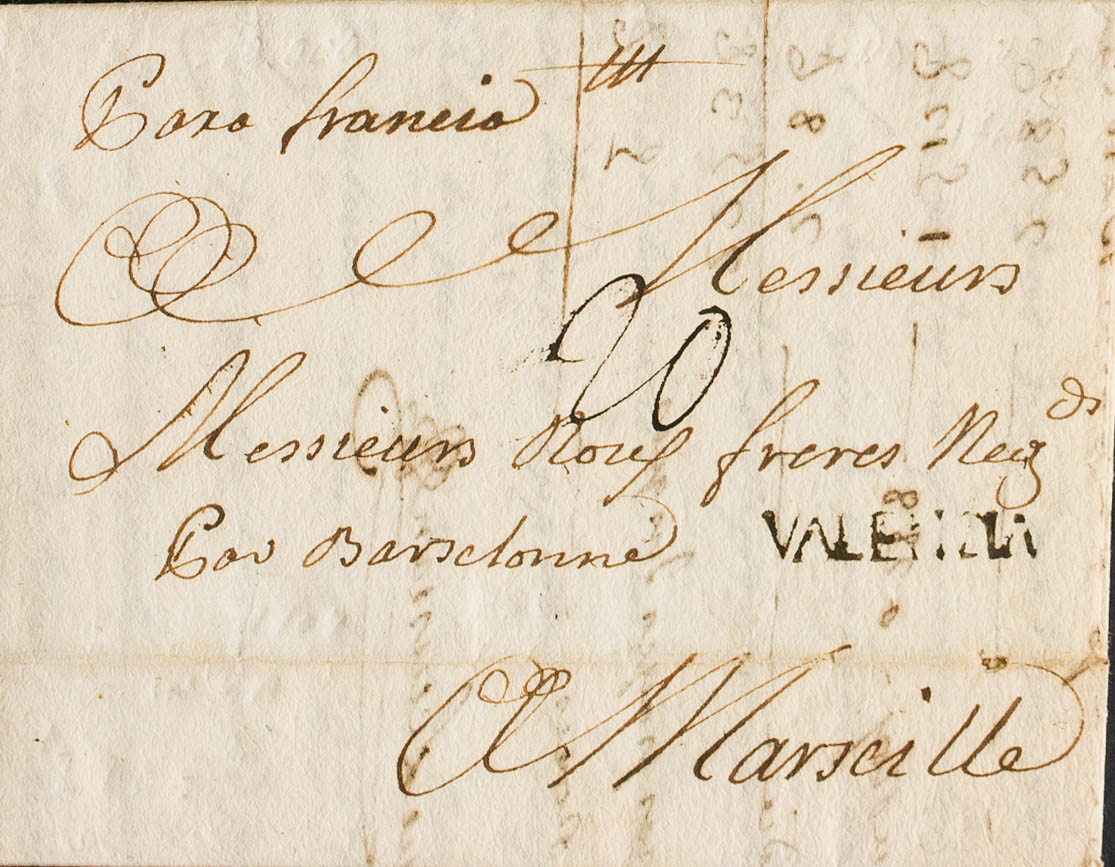 Para francia
A Messieurs
20
Messieurs Roux freres Neg ds
Par Barselonne VALENCIA
A Marseille